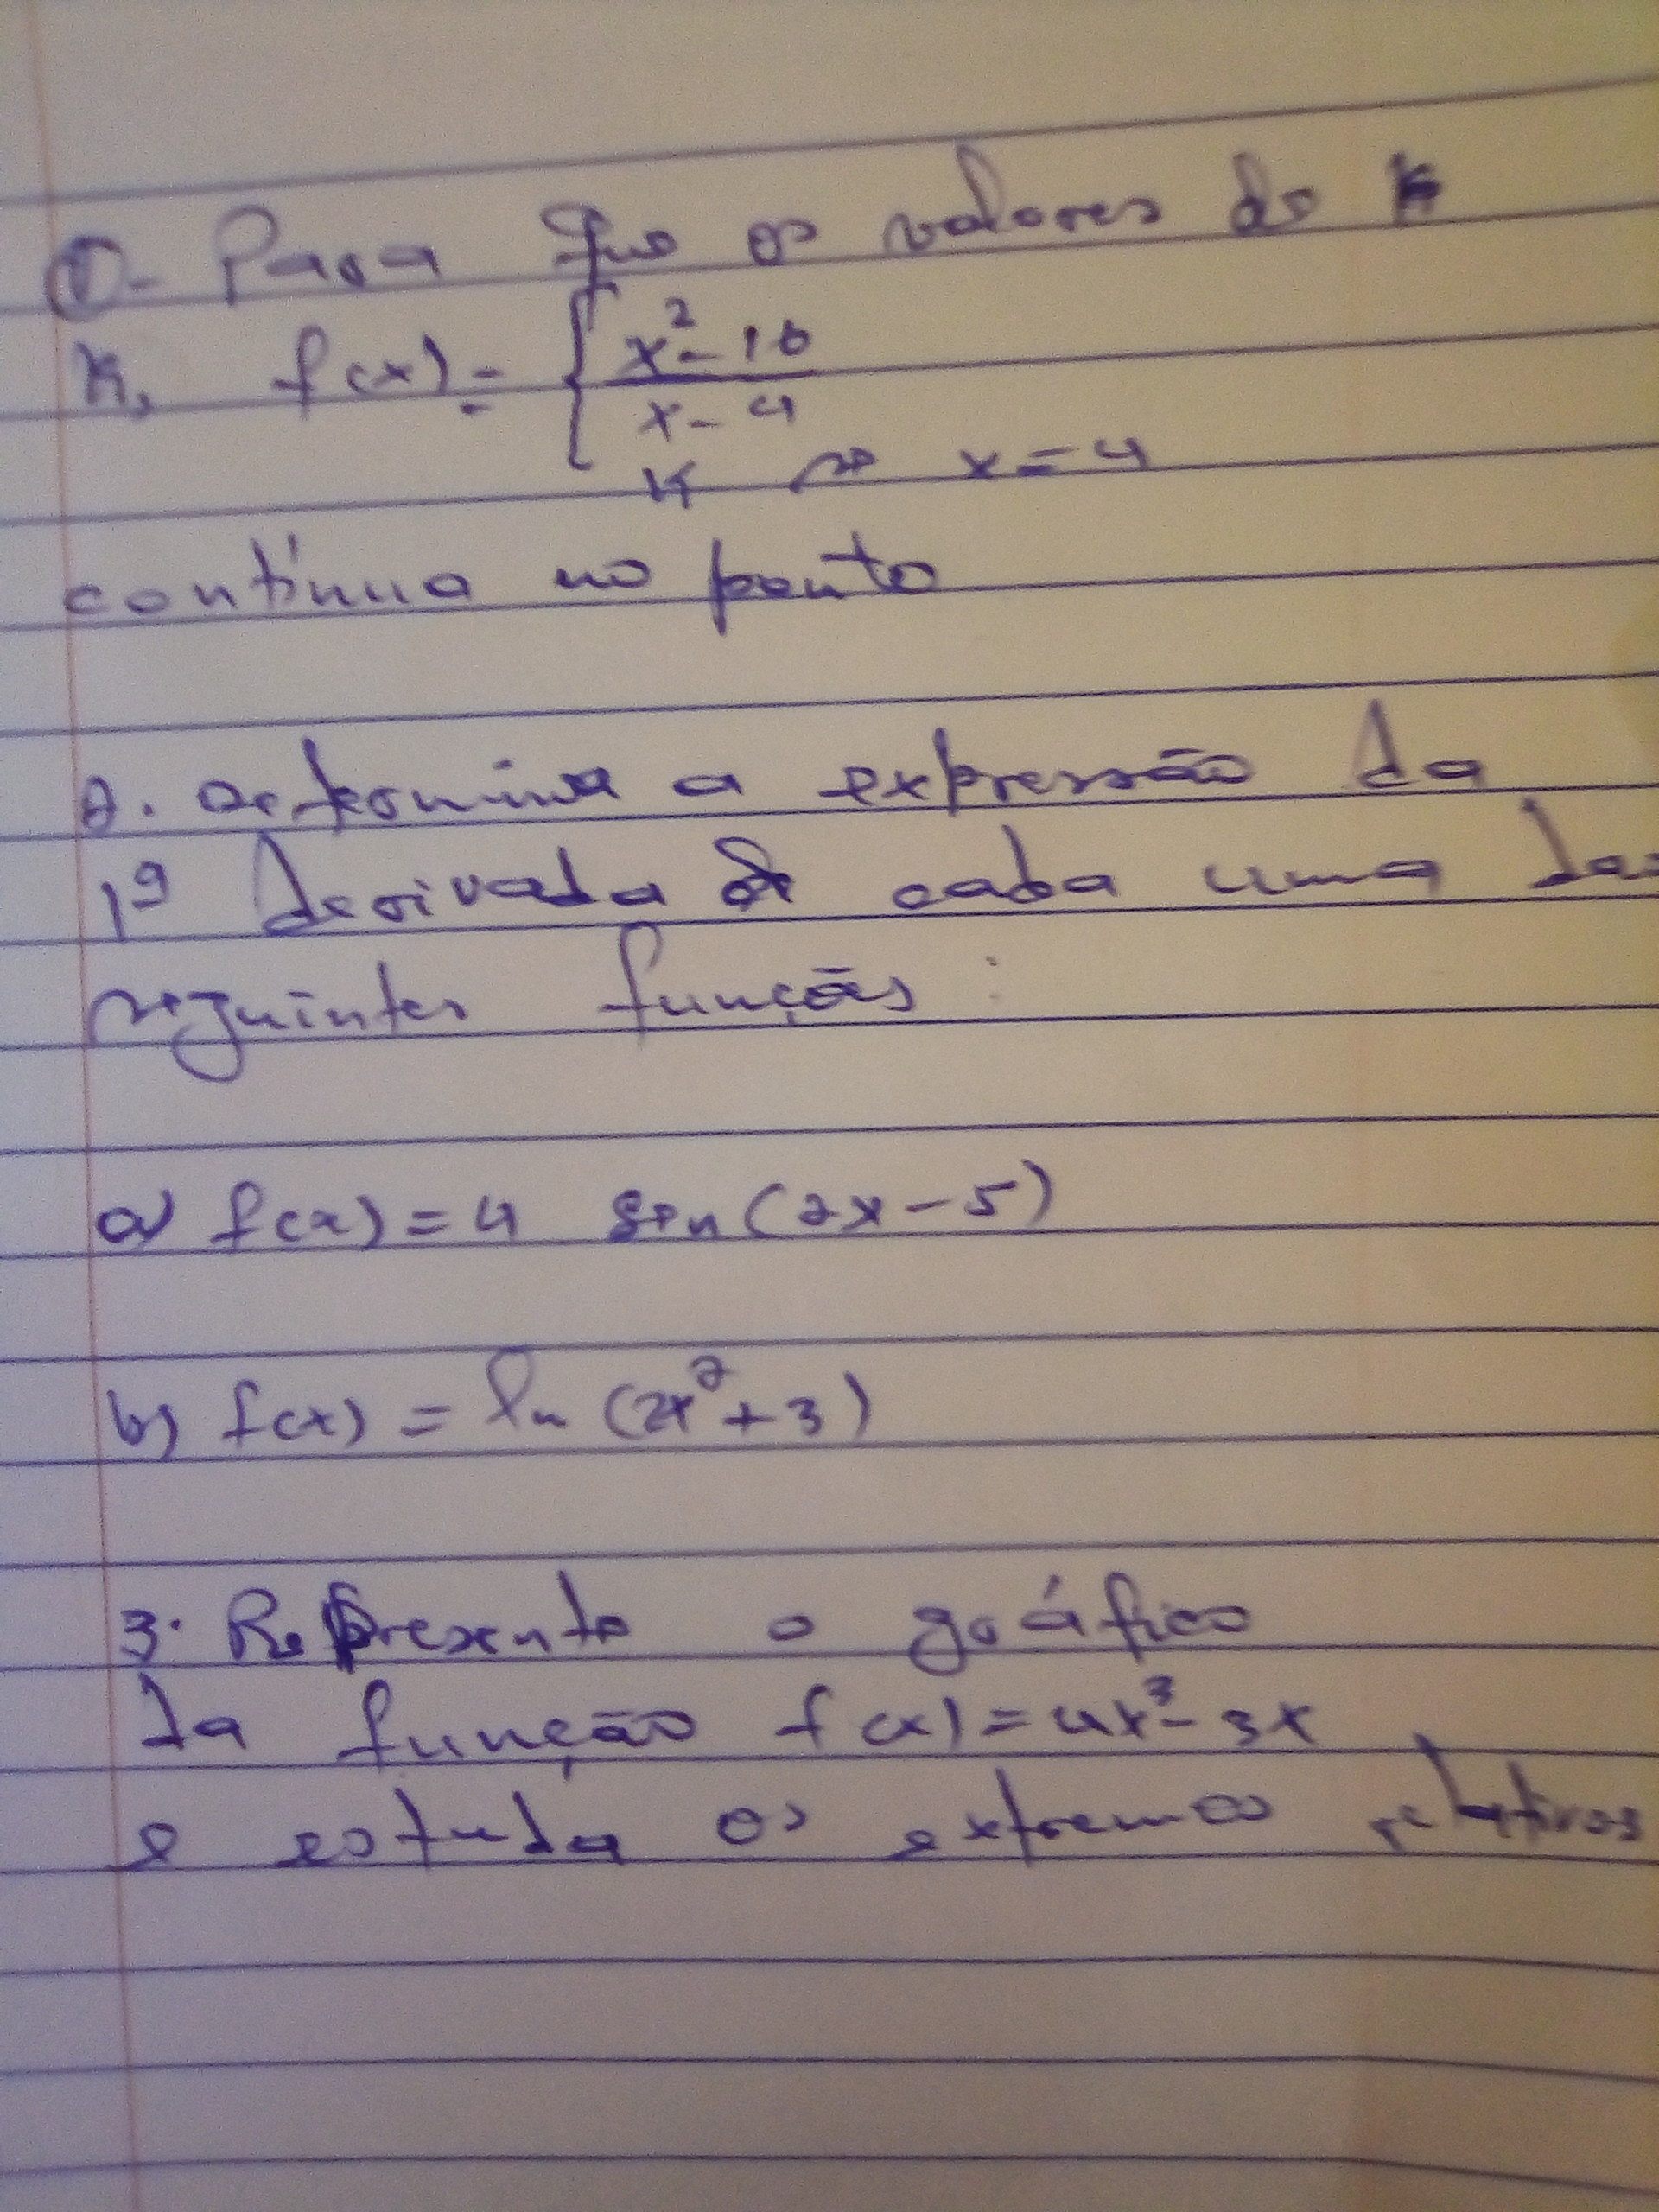 1- Para que os valores de K
K, f(x) = { x² - 16 / x - 4
K se x = 4
contínua no ponto
2. Determina a expressão da
1ª derivada de cada uma das
seguintes funções :
a) f(x) = 4 sen (2x - 5)
b) f(x) = ln (2x² + 3)
3. Represente o gráfico
da função f(x) = 4x³ - 3x
e estuda os extremos relativos